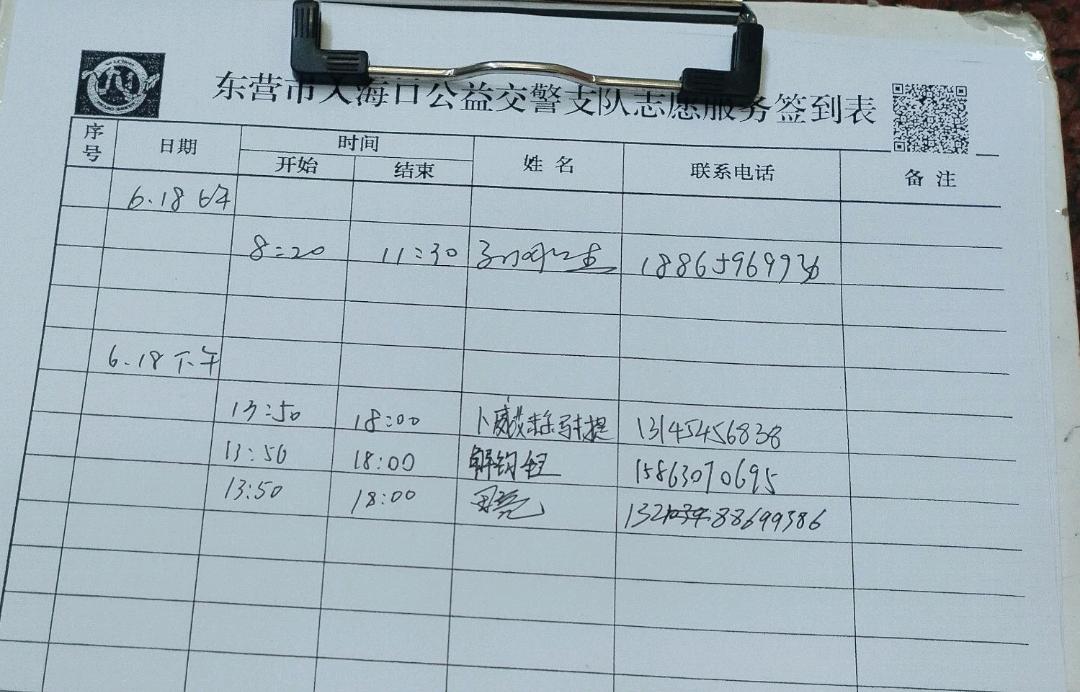 东营市入海口公益交警支队志愿服务签到表
序号 日期 时间 姓名 联系电话 备注
开始 结束
6.18 上午
8:20 11:30
6.18 下午
13:50 18:00 13145456838
13:50 18:00 解钧钽 15863070695
13:50 18:00 88699386